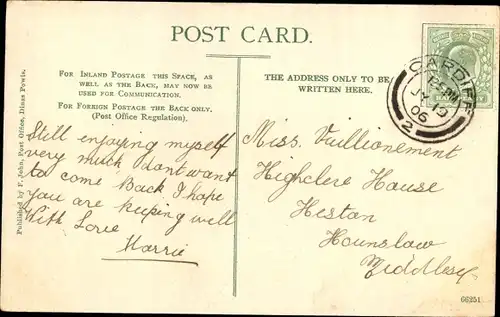 POST CARD.
FOR INLAND POSTAGE THIS SPACE, AS
WELL AS THE BACK, MAY NOW BE
USED FOR COMMUNICATION.
FOR FOREIGN POSTAGE THE BACK ONLY.
(Post Office Regulation).
THE ADDRESS ONLY TO BE
WRITTEN HERE.
Published by F. John, Post Office, Dinas Powis.
Still enjoying myself
very much dont want
to come Back I hope
you are keeping well
With Love
Harrie
CARDIFF
JY
06
2
Miss. Vuillionement
Highclere House
Heston
Hounslow
Middlesex
66251